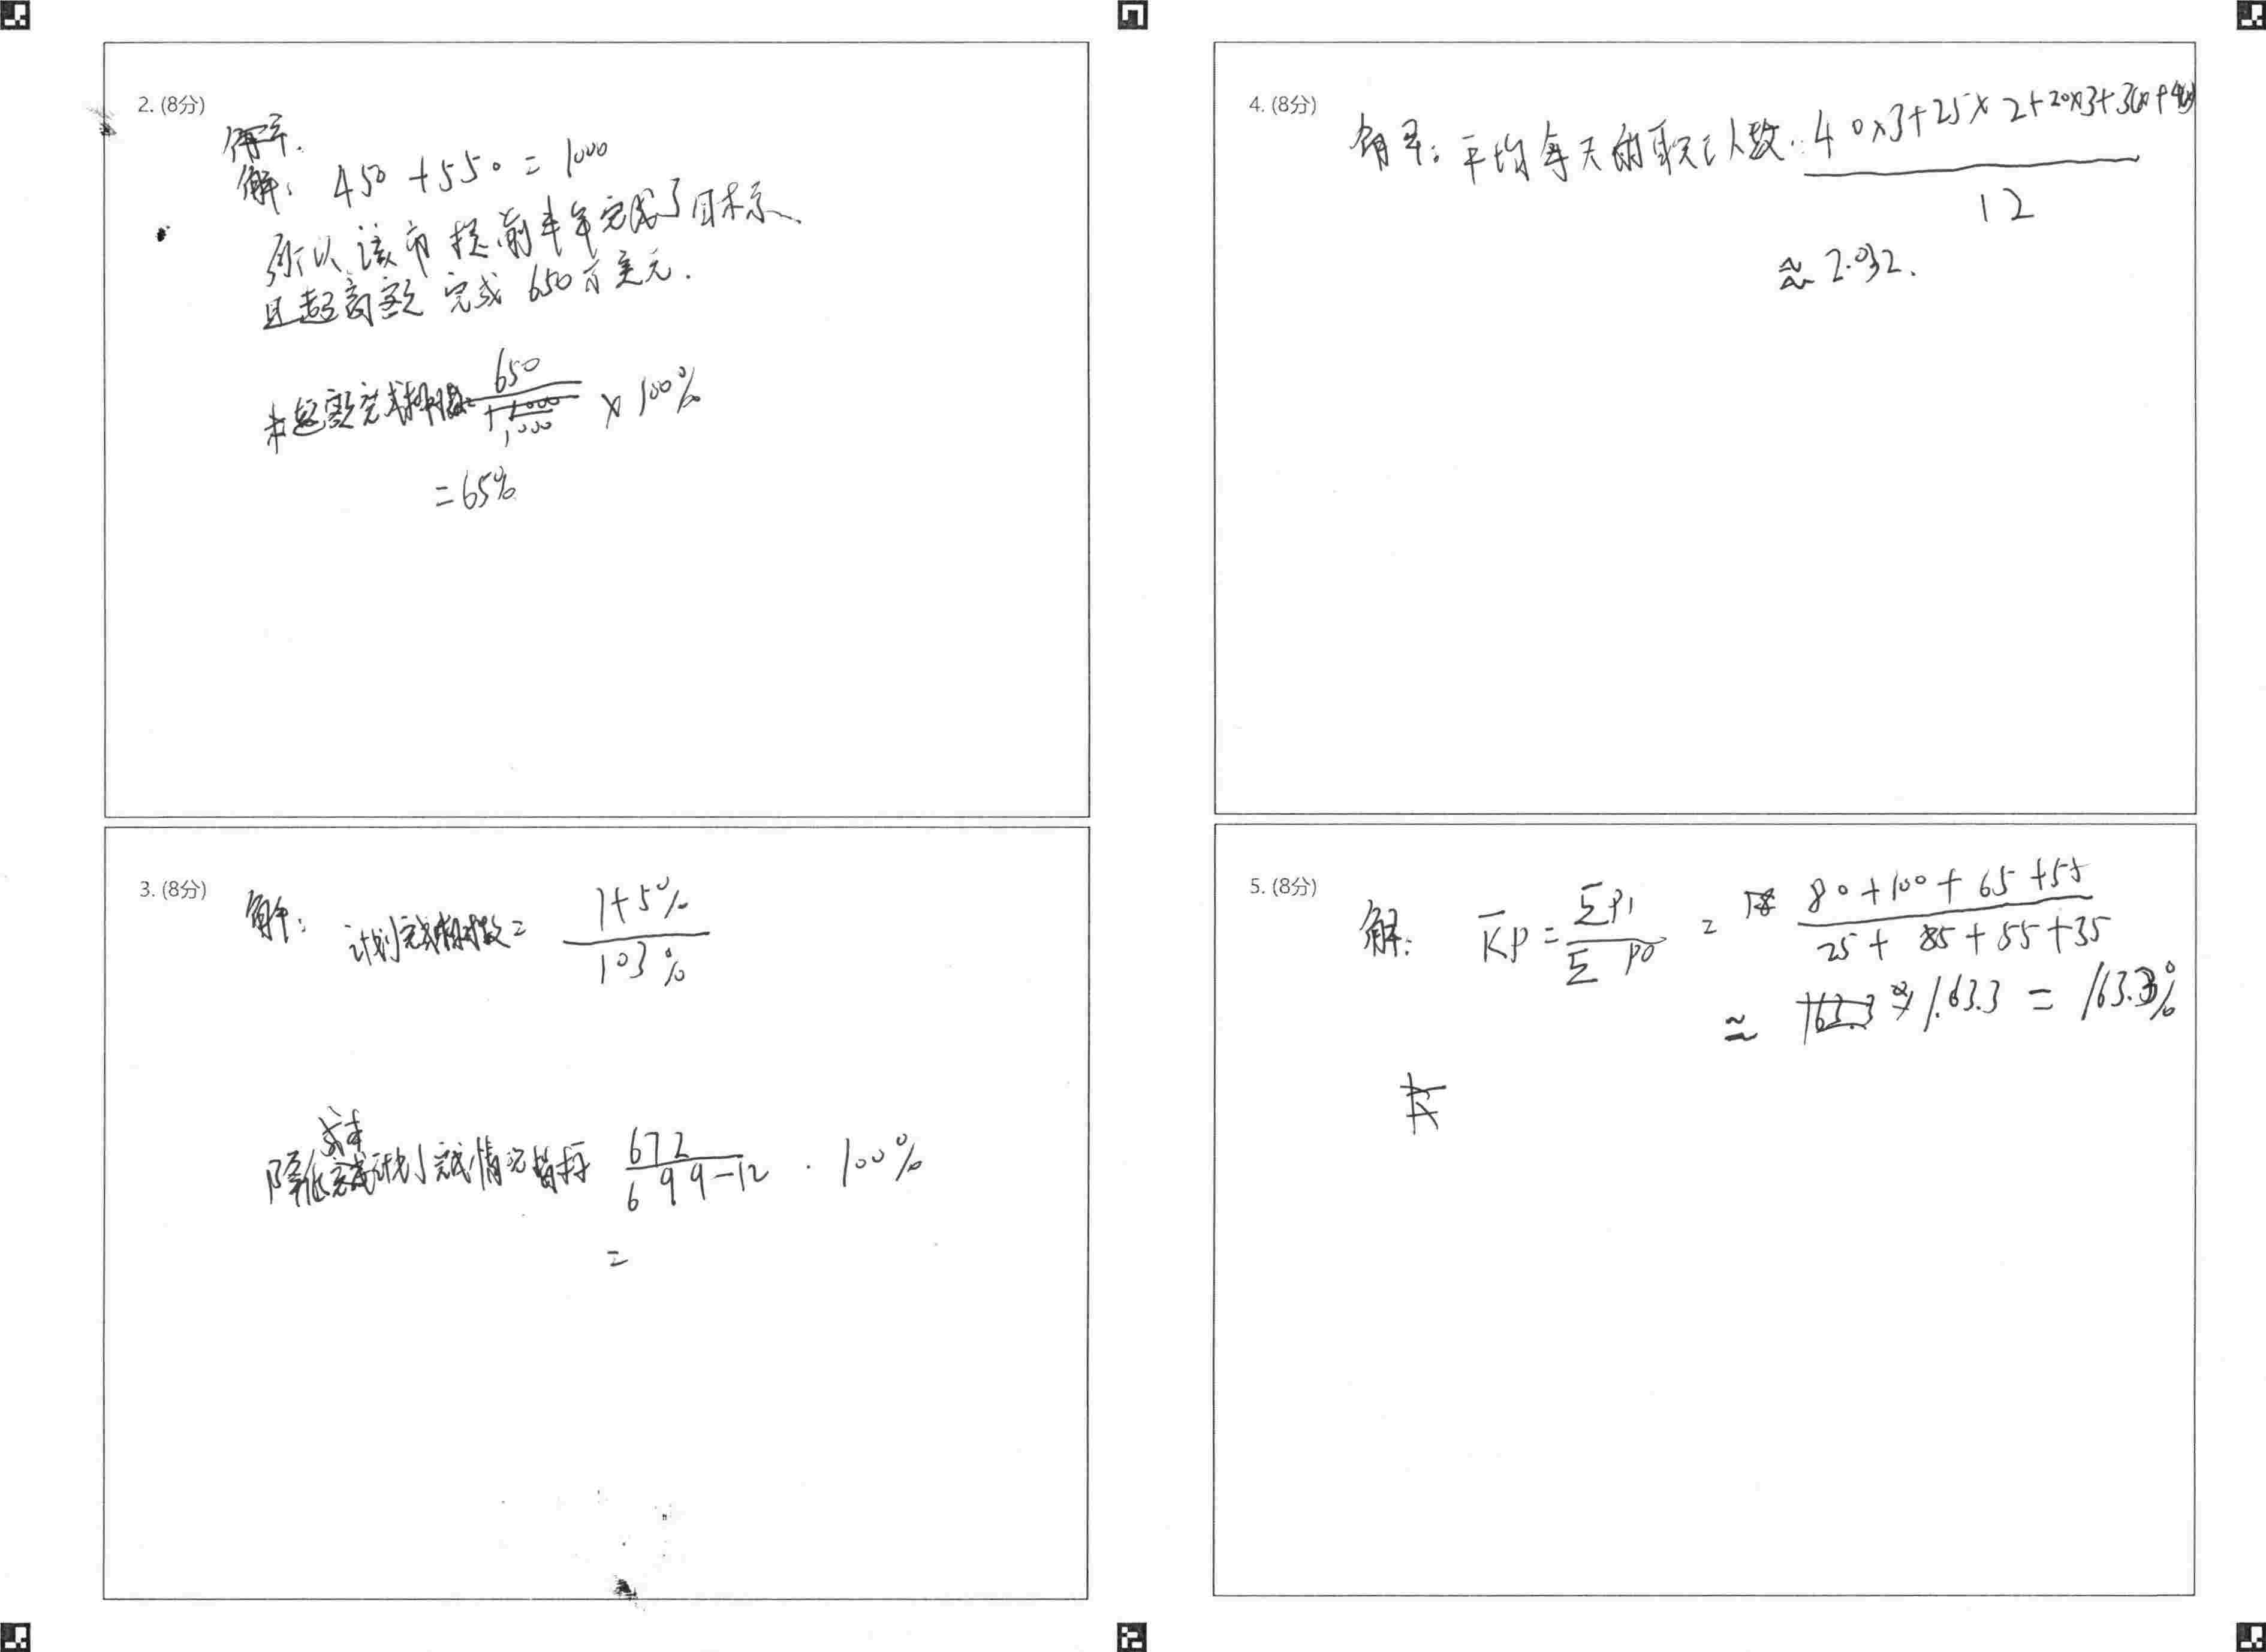 2. (8分)
解:
解: 450 + 550 = 1000
所以该市提前半年完成了目标
且超额完成 650万美元.
超额完成 = 650 / 1000 × 100%
= 65%
3. (8分)
解: 计划完成相对数 = 1+5% / 103%
成本
降低计划完成情况指标 672 / 699-12 · 100%
=
4. (8分)
解: 平均每天的职工人数: 40×3+25×2+20×3+ / 12
≈ 2.032.
5. (8分)
解: K̄p = ΣP1 / ΣP0 = 80+100+65+55 / 25+85+55+35
≈ 1.633 = 163.3%